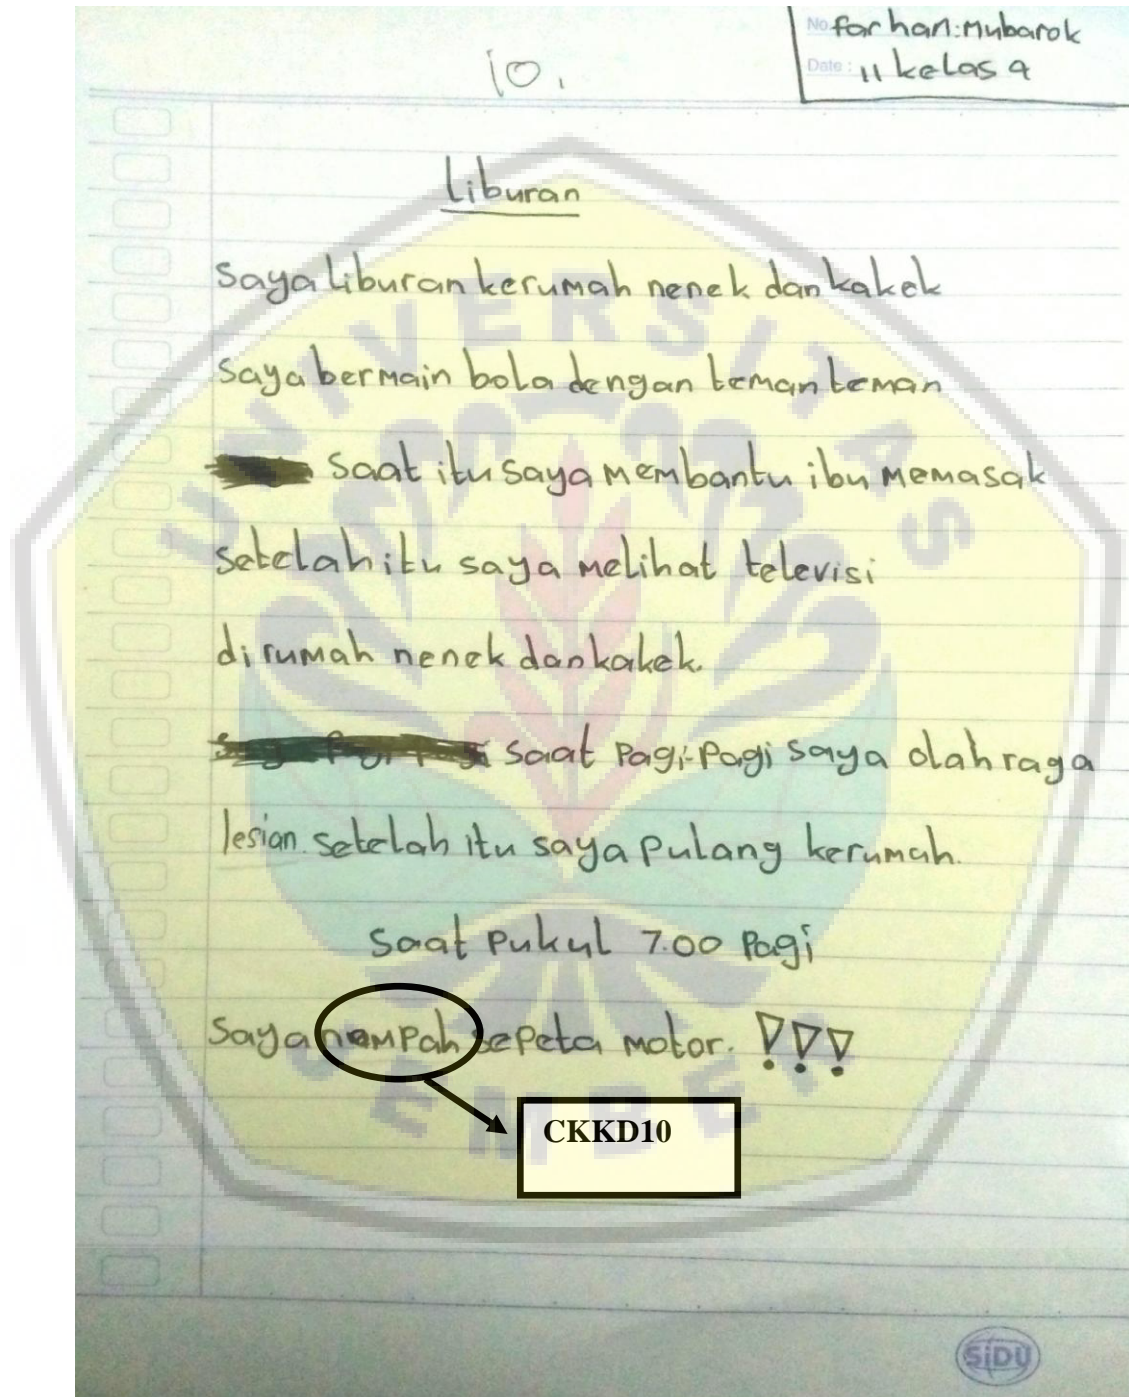 No farhan:mubarok
Date : 11 kelas 4
10.
Liburan
Saya liburan kerumah nenek dan kakek
Saya bermain bola dengan teman teman
saat itu saya membantu ibu memasak
setelah itu saya melihat televisi
di rumah nenek dan kakek.
saat Pagi-Pagi saya olah raga
lesian. setelah itu saya pulang kerumah.
Saat pukul 7.00 Pagi
Saya nompah sepeta motor. !!!
CKKD10
UNIVERSITAS
JEMBER
SiDU